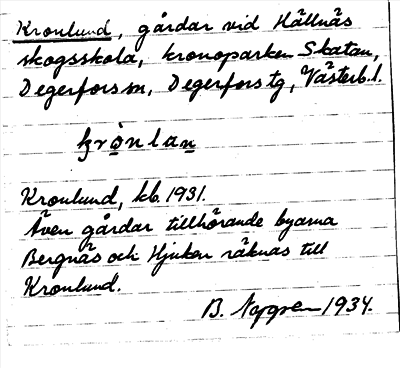 Kronlund, gårdar vid Hällnäs
skogsskola, kronoparken Skatan,
Degerfors sn, Degerfors tg, Västerb. l.
krònlan
Kronlund, kb. 1931.
Även gårdar tillhörande byarna
Bergnäs och Hjuken räknas till
Kronlund.
B. Nygren 1934.